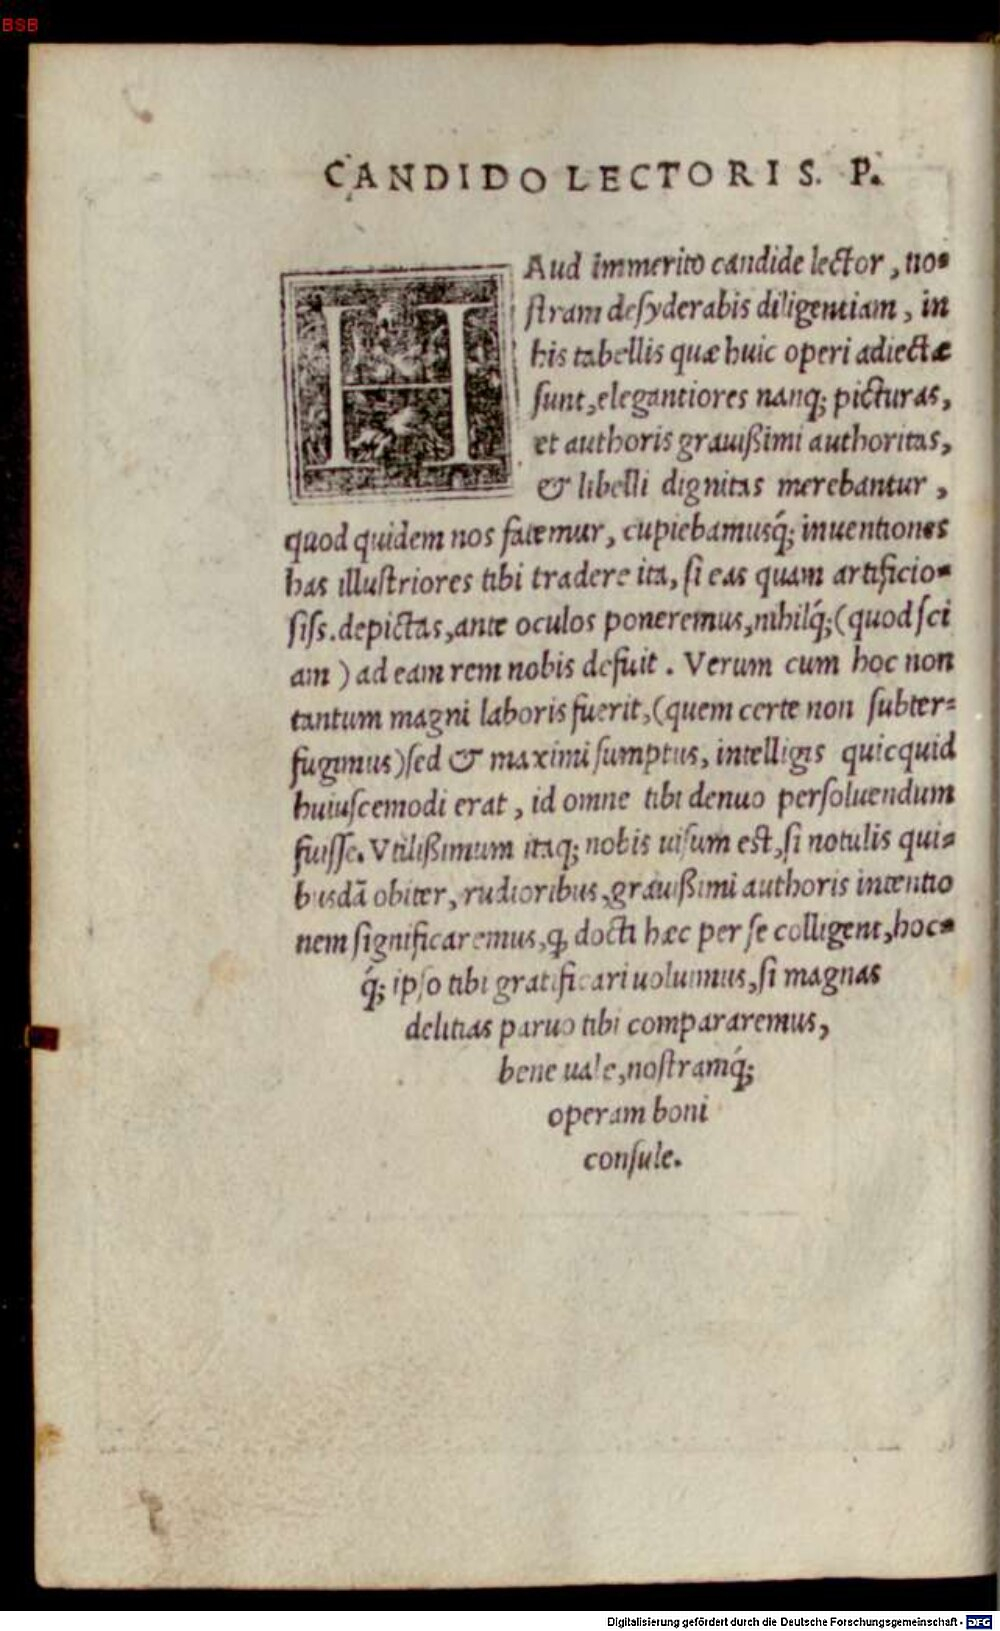 BSB
CANDIDO LECTORI S. P.
HAud immerito candide lector, no-
ſtram deſyderabis diligentiam, in
his tabellis quæ huic operi adiectæ
ſunt, elegantiores nanq; picturas,
et authoris grauißimi authoritas,
& libelli dignitas merebantur,
quod quidem nos fatemur, cupiebamusq́; inuentiones
has illuſtriores tibi tradere ita, ſi eas quam artificio-
ſiſs. depictas, ante oculos poneremus, nihilq́; (quod ſci
am) ad eam rem nobis defuit. Verum cum hoc non
tantum magni laboris fuerit, (quem certe non ſubter-
fugimus) ſed & maximi ſumptus, intelligis quicquid
huiuſcemodi erat, id omne tibi denuo perſoluendum
fuiſſe. Vtilißimum itaq; nobis uiſum est, ſi notulis qui-
buſdā obiter, rudioribus, grauißimi authoris intentio
nem ſignificaremus, ꝙ docti hæc per ſe colligent, hoc-
q́; ipſo tibi gratificari uoluimus, ſi magnas
delitias paruo tibi compararemus,
bene uale, noſtramq́;
operam boni
conſule.
Digitalisierung gefördert durch die Deutsche Forschungsgemeinschaft - DFG